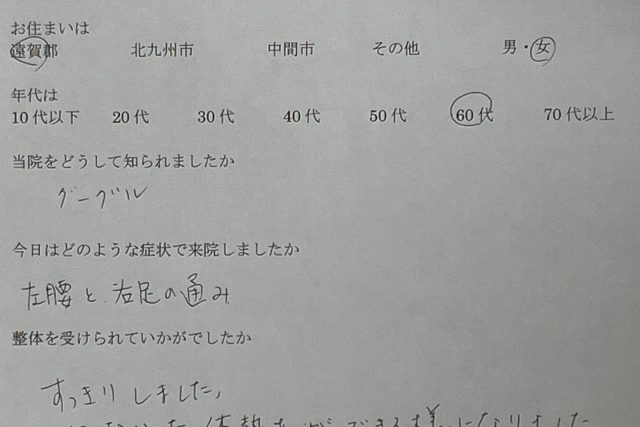 お住まいは
遠賀郡 北九州市 中間市 その他 男・女
年代は
10代以下 20代 30代 40代 50代 60代 70代以上
当院をどうして知られましたか
グーグル
今日はどのような症状で来院しましたか
左腰と、右足の痛み
整体を受けられていかがでしたか
すっきりしました,
できる様になりました